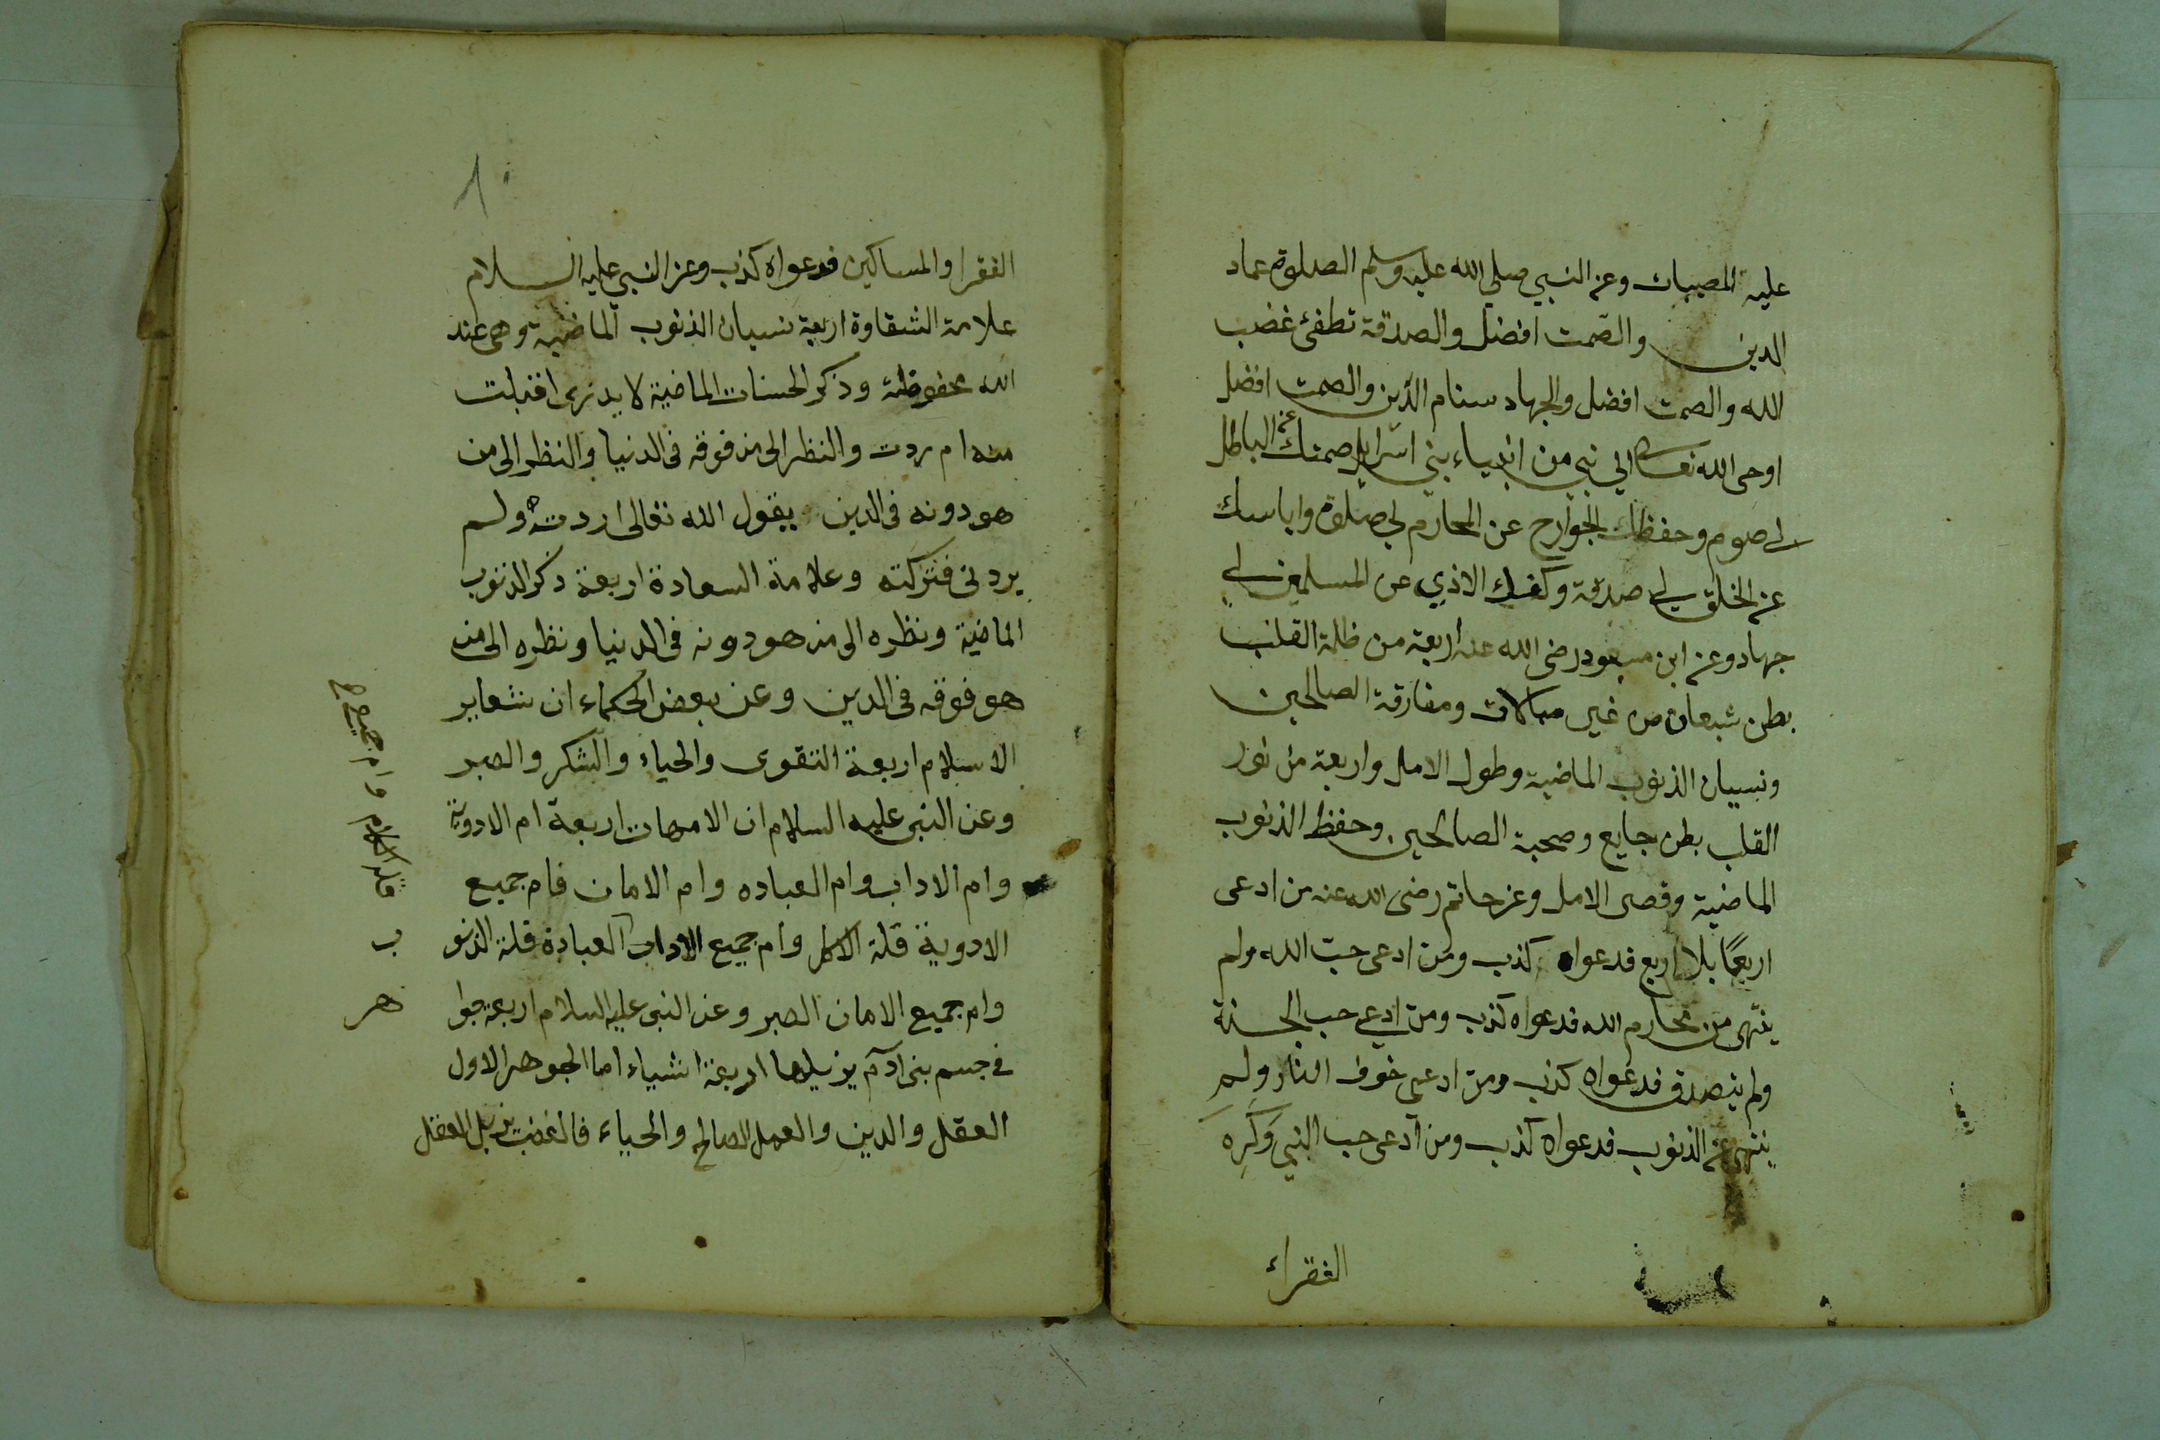 عليه المصيبات وعن النبي صلى الله عليه وسلم الصلوة عماد
الدين والصمت افضل والصدقة تطفئ غضب
الله والصمت افضل والجهاد سنام الدين والصمت افضل
اوحى الله تعالى الي نبي من انبياء بني اسرايل صمتك عن الباطل
لي صوم وحفظك الجوارح عن المحارم لي صلوة واياسك
عن الخلق لي صدقة وكفك الاذي عن المسلمين لي
جهاد وعن ابن مسعود رضى الله عنه اربعة من ظلمة القلب
بطن شبعان من غير مبالات ومفارقة الصالحين
ونسيان الذنوب الماضية وطول الامل واربعة من نور
القلب بطن جايع وصحبة الصالحين وحفظ الذنوب
الماضية وقصر الامل وعن حاتم رضى الله عنه من ادعى
اربعًا بلا اربع فدعواه كذب ومن ادعى حب الله ولم
ينتهى من محارم الله فدعواه كذب ومن ادعى حب الجنة
ولم يتصدق فدعواه كذب ومن ادعى خوف النار ولم
ينتهى عن الذنوب فدعواه كذب ومن ادعى حب النبي وكره
الفقراء
١٠
الفقرا والمساكين فدعواه كذب وعن النبي عليه السلام
علامة الشقاوة اربعة نسيان الذنوب الماضية وهى عند
الله محفوظة وذكر الحسنات الماضية لا يدري اقبلت
منه ام ردت والنظر الى من فوقه فى الدنيا والنظر الى من
هو دونه فى الدين يقول الله تعالى اردته ولم
يردنى فتركته وعلامة السعادة اربعة ذكر الذنوب
الماضية ونظره الى من هو دونه فى الدنيا ونظره الى من
هو فوقه فى الدين وعن بعض الحكماء ان شعاير
الاسلام اربعة التقوى والحياء والشكر والصبر
وعن النبى عليه السلام ان الامهات اربعة ام الادوية
وام الاداب وام العباده وام الامان فام جميع
الادوية قلة الاكل وام جميع الاداب العبادة قلة الذنو
ب
وام جميع الامان الصبر وعن النبى عليه السلام اربعة جوا
هر
فى جسم بنى آدم يزيلها اربعة اشياء اما الجوهر الاول
العقل والدين والعمل الصالح والحياء فالغضب يزيل العقل
قلة الكلام وام جميع